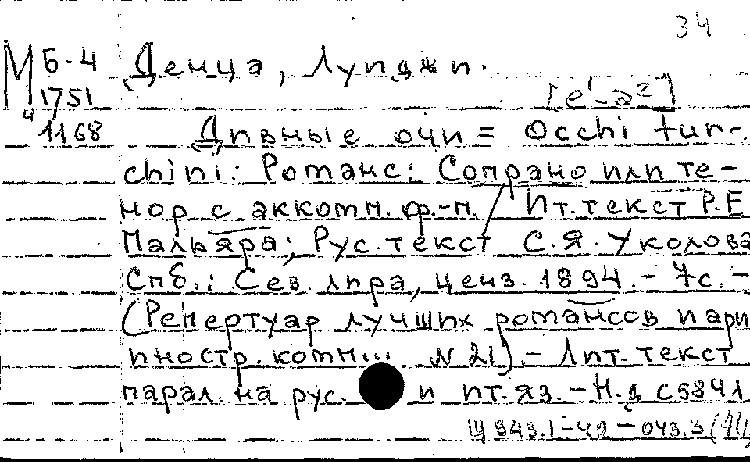 34
М Б-4 Денца, Луиджи.
1751 [e¹-a²]
4
1168 Дивные очи = Occhi tur-
chini: Романс: Сопрано или те-
нор с аккомп. ф.-п. / Ит. текст Р.Е
Пальяра; Рус. текст С.Я. Уколова
Спб.: Сев. лира, ценз. 1894. - 7с. -
(Репертуар лучших романсов и ари
иностр. комп. N 21). - Лит. текст
парал. на рус. и ит. яз. - Н.д с684л
Щ 943.1-49-043.3